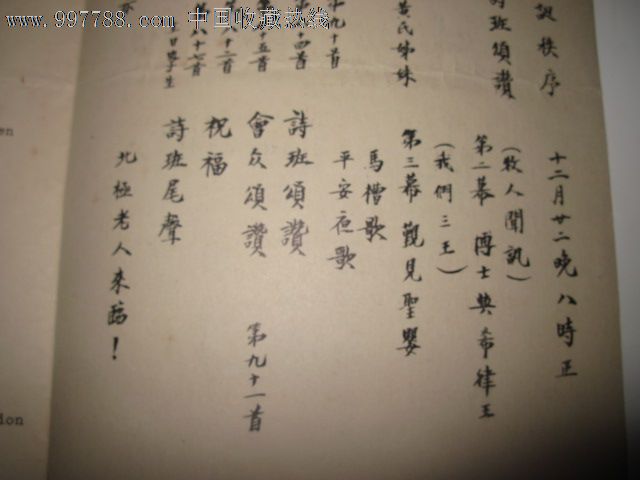 www.997788.com 中国收藏热线
誕秩序
詩班頌讚
黃氏姊妹
九十首
十四首
五首
十二首
八十七首
十二月廿二晚八時正
(牧人聞訊)
第二幕 博士與希律王
(我們三王)
第三幕 觀見聖嬰
馬槽歌
平安夜歌
詩班頌讚
會众頌讚 第九十一首
祝福
詩班尾聲
北極老人來臨！
en
ion